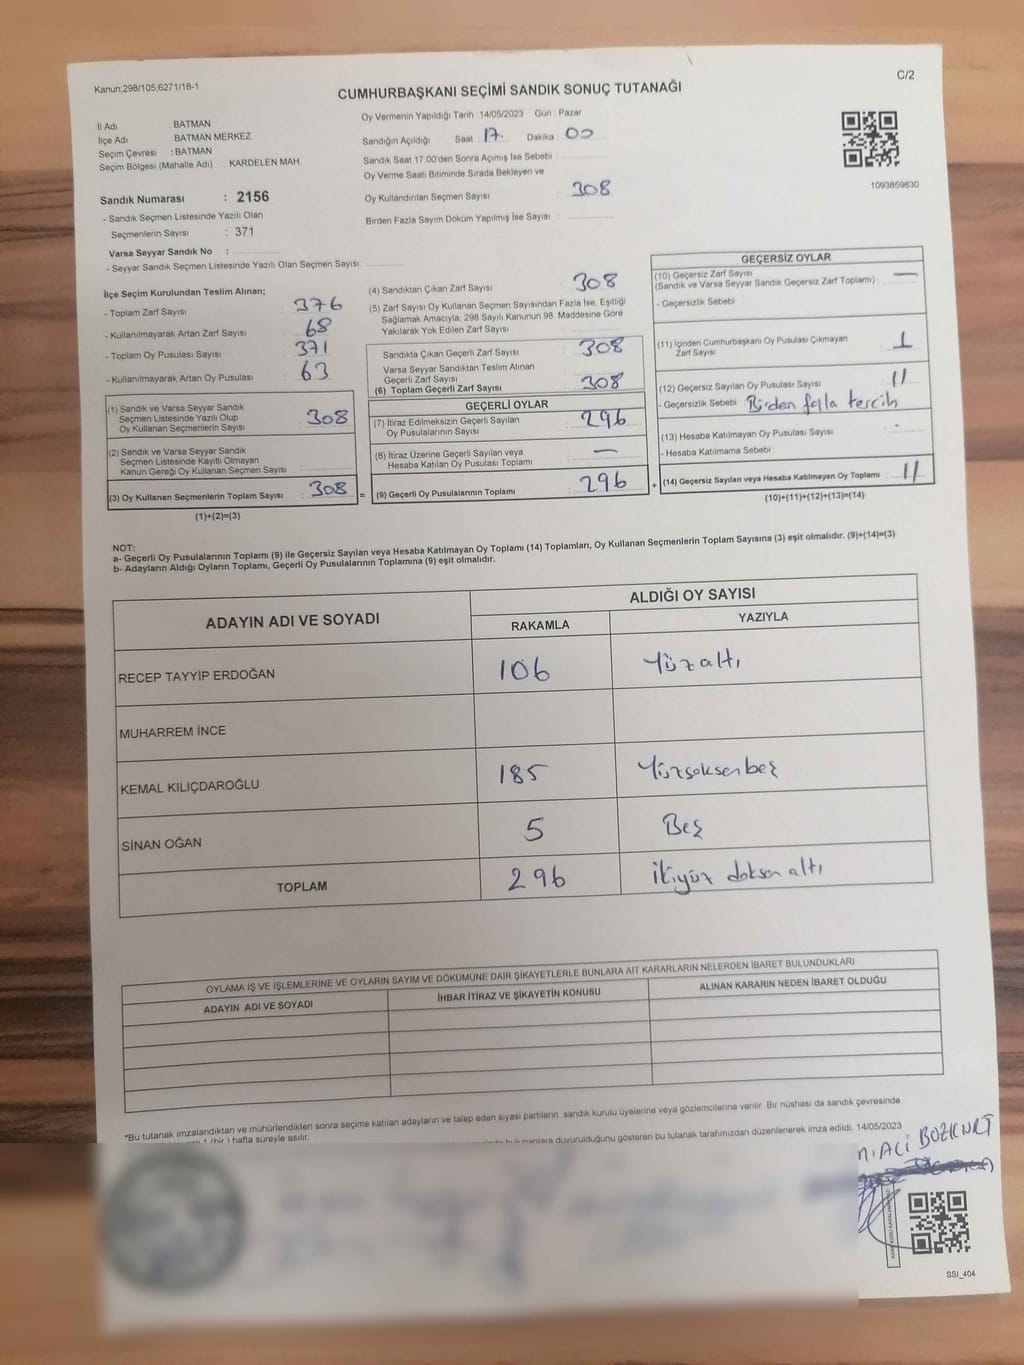 Kanun;298/105,6271/18-1
C/2
CUMHURBAŞKANI SEÇİMİ SANDIK SONUÇ TUTANAĞI
İl Adı : BATMAN
İlçe Adı : BATMAN MERKEZ
Seçim Çevresi : BATMAN
Seçim Bölgesi (Mahalle Adı) : KARDELEN MAH.
Sandık Numarası : 2156
- Sandık Seçmen Listesinde Yazılı Olan
Seçmenlerin Sayısı : 371
Varsa Seyyar Sandık No :
- Seyyar Sandık Seçmen Listesinde Yazılı Olan Seçmen Sayısı :
Oy Vermenin Yapıldığı Tarih : 14/05/2023 Gün : Pazar
Sandığın Açıldığı Saat : 17. Dakika : 00
Sandık Saat 17.00'den Sonra Açımış İse Sebebi :
Oy Verme Saati Bitiminde Sırada Bekleyen ve
Oy Kullandırılan Seçmen Sayısı : 308
Birden Fazla Sayım Döküm Yapılmış İse Sayısı :
1093859830
İlçe Seçim Kurulundan Teslim Alınan;
- Toplam Zarf Sayısı : 376
- Kullanılmayarak Artan Zarf Sayısı : 68
- Toplam Oy Pusulası Sayısı : 371
- Kullanılmayarak Artan Oy Pusulası : 63
(1) Sandık ve Varsa Seyyar Sandık
Seçmen Listesinde Yazılı Olup
Oy Kullanan Seçmenlerin Sayısı : 308
(2) Sandık ve Varsa Seyyar Sandık
Seçmen Listesinde Kayıtlı Olmayan
Kanun Gereği Oy Kullanan Seçmen Sayısı :
(3) Oy Kullanan Seçmenlerin Toplam Sayısı : 308 =
(1)+(2)=(3)
(4) Sandıktan Çıkan Zarf Sayısı : 308
(5) Zarf Sayısı Oy Kullanan Seçmen Sayısından Fazla İse, Eşitliği
Sağlamak Amacıyla, 298 Sayılı Kanunun 98. Maddesine Göre
Yakılarak Yok Edilen Zarf Sayısı :
Sandıkta Çıkan Geçerli Zarf Sayısı : 308
Varsa Seyyar Sandıktan Teslim Alınan
Geçerli Zarf Sayısı :
(6) Toplam Geçerli Zarf Sayısı : 308
GEÇERLİ OYLAR
(7) İtiraz Edilmeksizin Geçerli Sayılan
Oy Pusulalarının Sayısı : 296
(8) İtiraz Üzerine Geçerli Sayılan veya
Hesaba Katılan Oy Pusulası Toplamı : —
(9) Geçerli Oy Pusulalarının Toplamı : 296 +
GEÇERSİZ OYLAR
(10) Geçersiz Zarf Sayısı
(Sandık ve Varsa Seyyar Sandık Geçersiz Zarf Toplamı) : —
- Geçersizlik Sebebi :
(11) İçinden Cumhurbaşkanı Oy Pusulası Çıkmayan
Zarf Sayısı : 1
(12) Geçersiz Sayılan Oy Pusulası Sayısı : 11
- Geçersizlik Sebebi : Birden fazla tercih
(13) Hesaba Katılmayan Oy Pusulası Sayısı :
- Hesaba Katılmama Sebebi :
(14) Geçersiz Sayılan veya Hesaba Katılmayan Oy Toplamı : 11
(10)+(11)+(12)+(13)=(14)
NOT:
a- Geçerli Oy Pusulalarının Toplamı (9) ile Geçersiz Sayılan veya Hesaba Katılmayan Oy Toplamı (14) Toplamları, Oy Kullanan Seçmenlerin Toplam Sayısına (3) eşit olmalıdır. (9)+(14)=(3)
b- Adayların Aldığı Oyların Toplamı, Geçerli Oy Pusulalarının Toplamına (9) eşit olmalıdır.
ADAYIN ADI VE SOYADI
ALDIĞI OY SAYISI
RAKAMLA YAZIYLA
RECEP TAYYİP ERDOĞAN 106 Yüzaltı
MUHARREM İNCE
KEMAL KILIÇDAROĞLU 185 Yüzseksenbeş
SİNAN OĞAN 5 Beş
TOPLAM 296 ikiyüz doksan altı
OYLAMA İŞ VE İŞLEMLERİNE VE OYLARIN SAYIM VE DÖKÜMÜNE DAİR ŞİKAYETLERLE BUNLARA AİT KARARLARIN NELERDEN İBARET BULUNDUKLARI
ADAYIN ADI VE SOYADI İHBAR İTİRAZ VE ŞİKAYETİN KONUSU ALINAN KARARIN NEDEN İBARET OLDUĞU
*Bu tutanak imzalandıktan ve mühürlendikten sonra seçime katılan adayların ve talep eden siyasi partilerin sandık kurulu üyelerine veya gözlemcilerine verilir. Bir nüshası da sandık çevresinde
1 (bir) hafta süreyle asılır.
bulunanlara duyurulduğunu gösteren bu tutanak tarafımızdan düzenlenerek imza edildi. 14/05/2023
ALİ BOZKURT
SSI_404